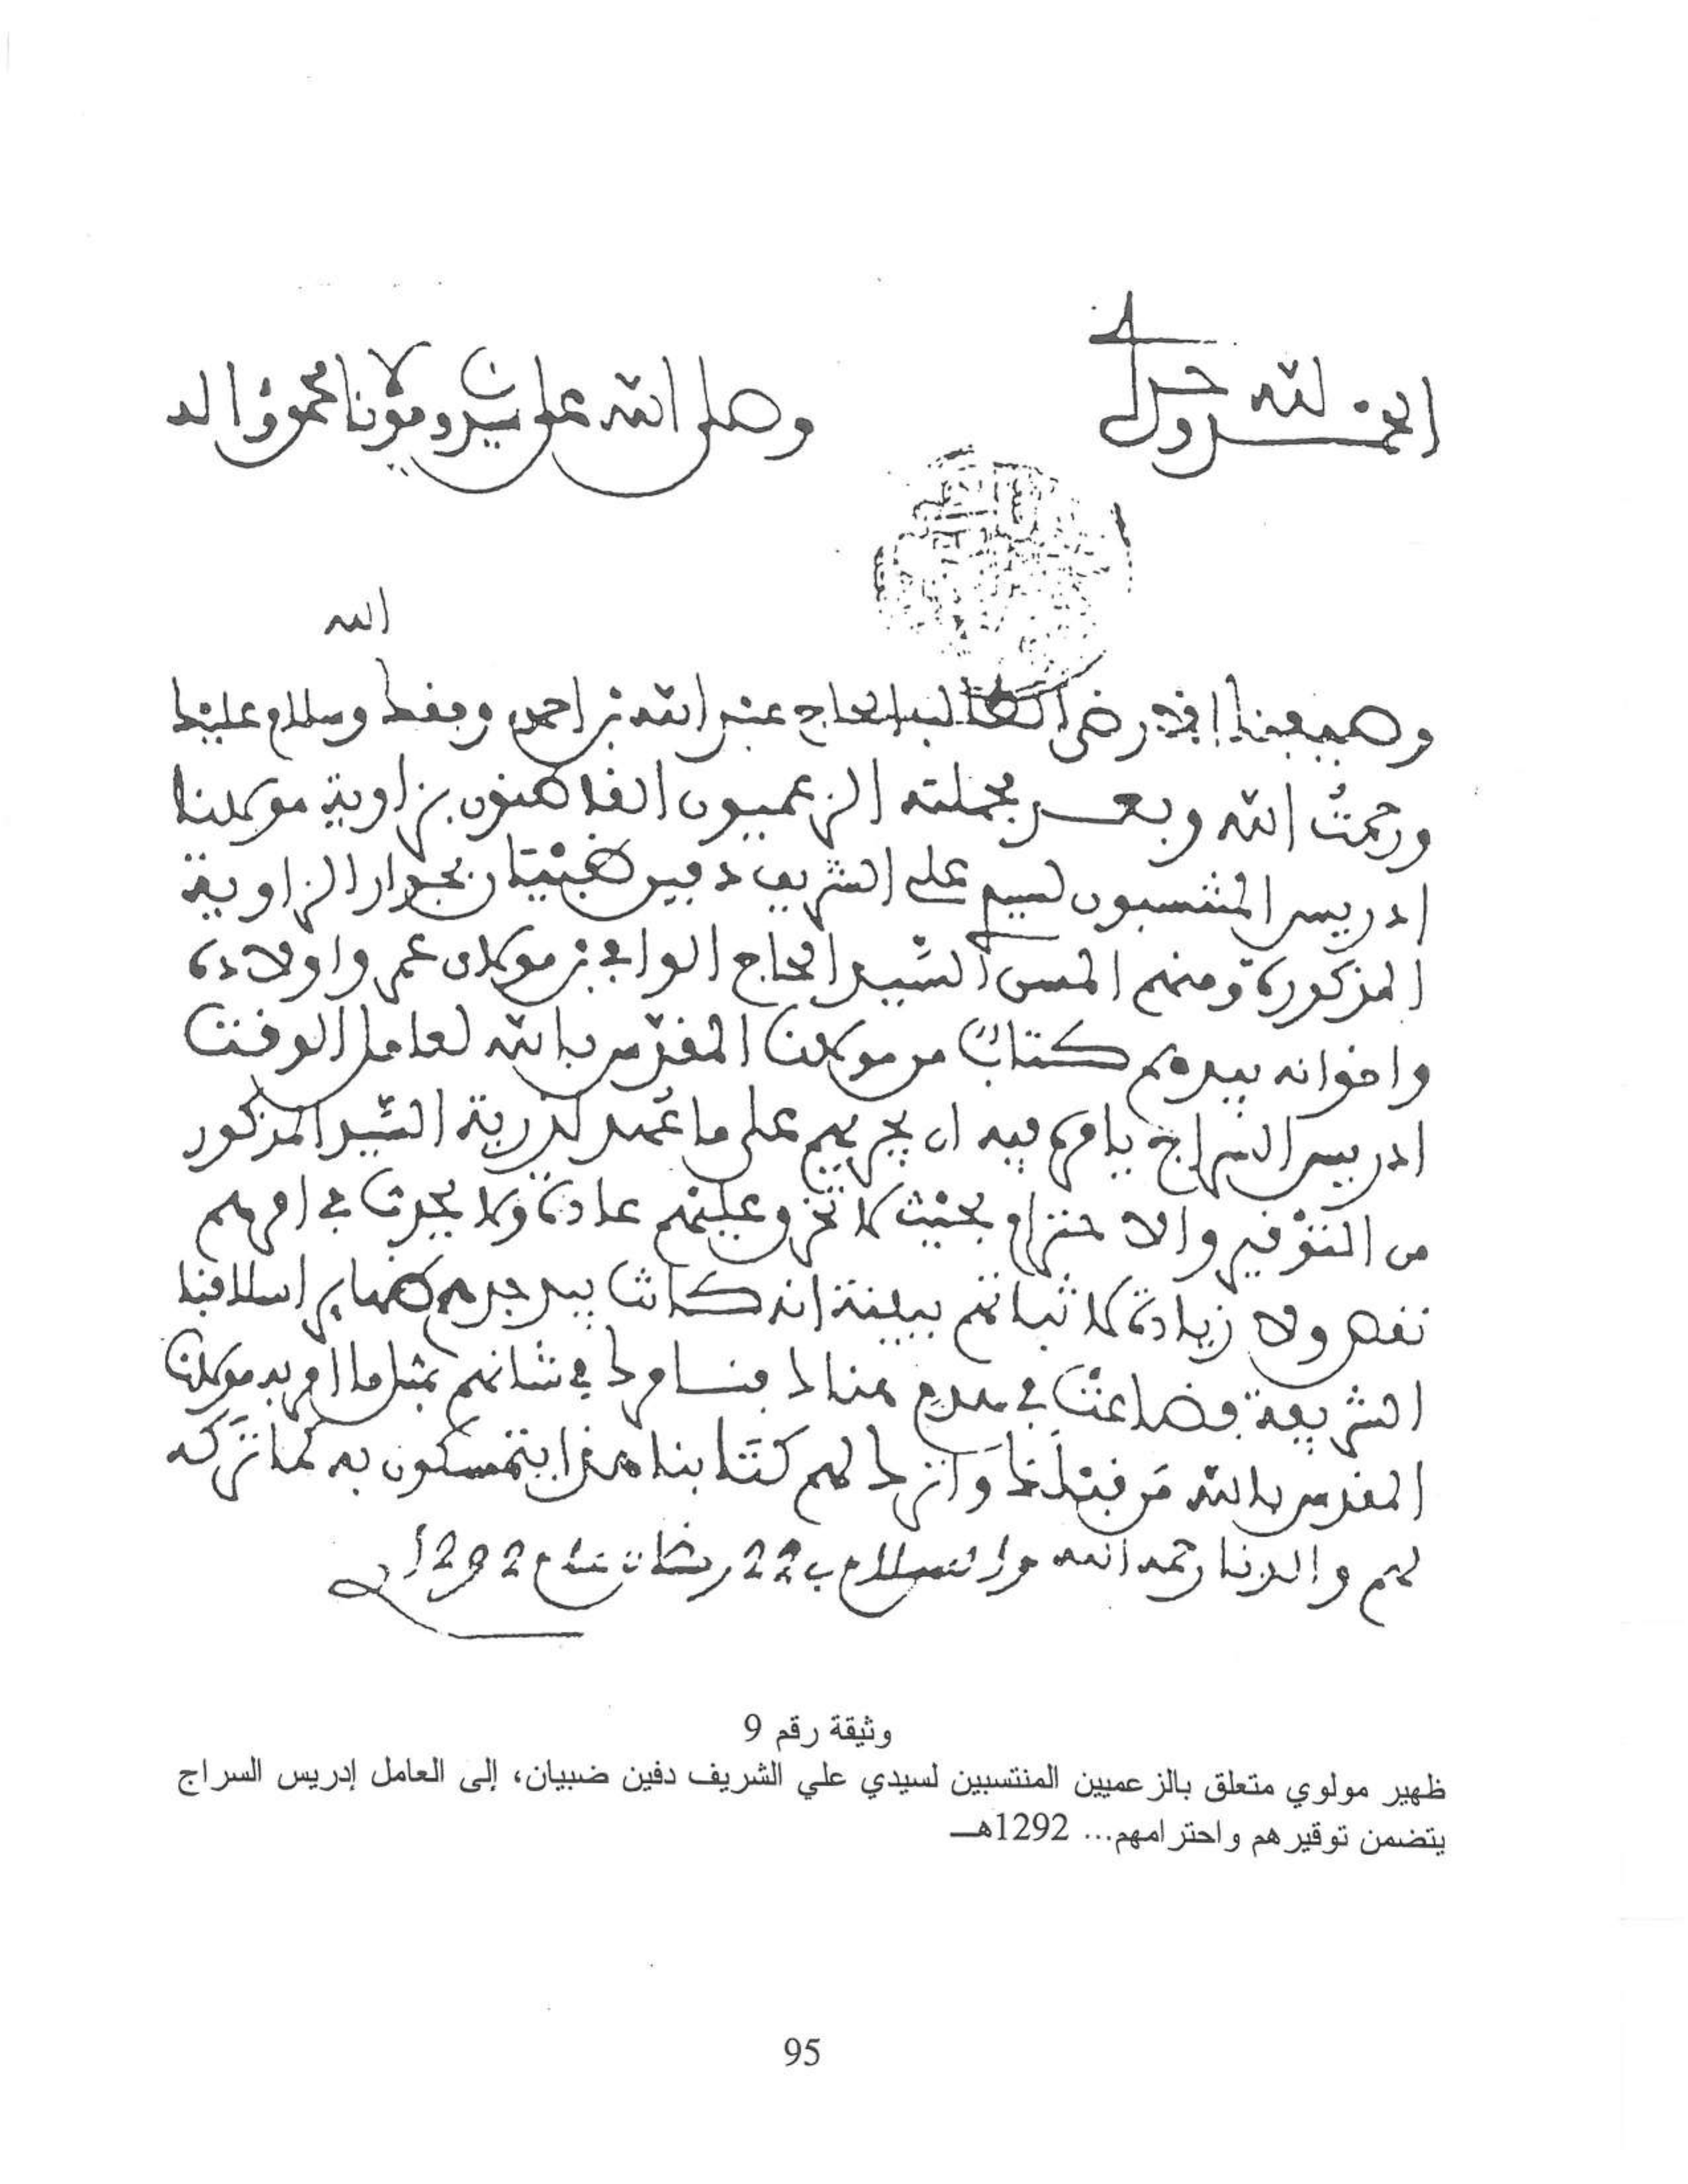 الحمد لله وحده
وصلى الله على سيدنا ومولانا محمد وءاله
الله
وصيفنا الارضى الطالب الحاج عبد الله بن احمد وفقك وسلام عليك
ورحمت الله وبعد فجملته الزعميون القاطنون بزاوية مولانا
ادريس المنتسبون لسيد علي الشريف دفين ضبيان بجوار الزاوية
المذكورة ومنهم المسن السيد الحاج الوافي بن مولاي عمر واولاده
واخوانه بيدهم كتاب من مولانا المقدس بالله لعامل الوقت
ادريس السراج يامره فيه ان يجريهم على ما عهد لذرية السيد المذكور
من التوقير والاحترام بحيث لا تخرق عليهم عادة ولا يحدث في امرهم
نقص ولا زيادة لاثباتهم ببينة انه كانت بيد جدهم ظهاير اسلافنا
الشريفة فضاعت في فنامرك في شانهم بمثل ما امر به مولانا
المقدس بالله من قبلك واترك لهم كتابنا هذا يتمسكون به كما تركه
لهم والدنا رحمه الله والسلام ب22 رمضان عام 1292
وثيقة رقم 9
ظهير مولوي متعلق بالزعميين المنتسبين لسيدي علي الشريف دفين ضبيان، إلى العامل إدريس السراج
يتضمن توقيرهم واحترامهم... 1292هـ
95